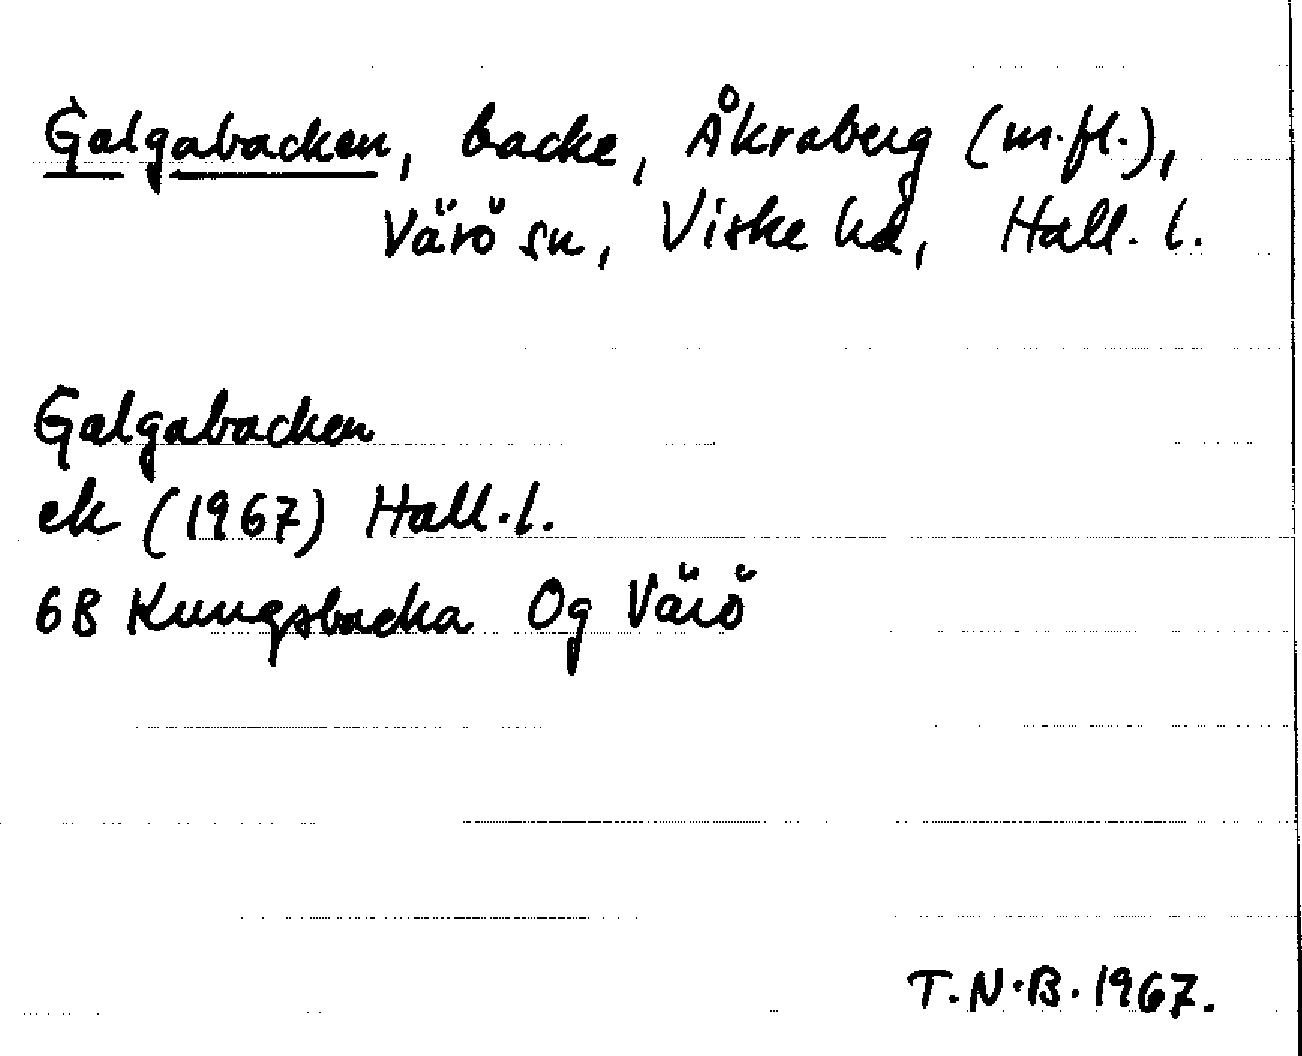 Galgabacken, backe, Åkraberg (m.fl.),
Värö sn, Viske hd, Hall. l.
Galgabacken
ek (1967) Hall. l.
6B Kungsbacka Og Värö
T.N.B. 1967.